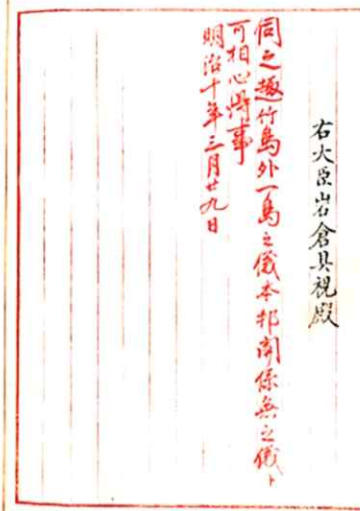 右大臣岩倉具視殿
伺之趣竹島外一島之儀本邦関係無之儀ト
可相心得事
明治十年三月廿九日